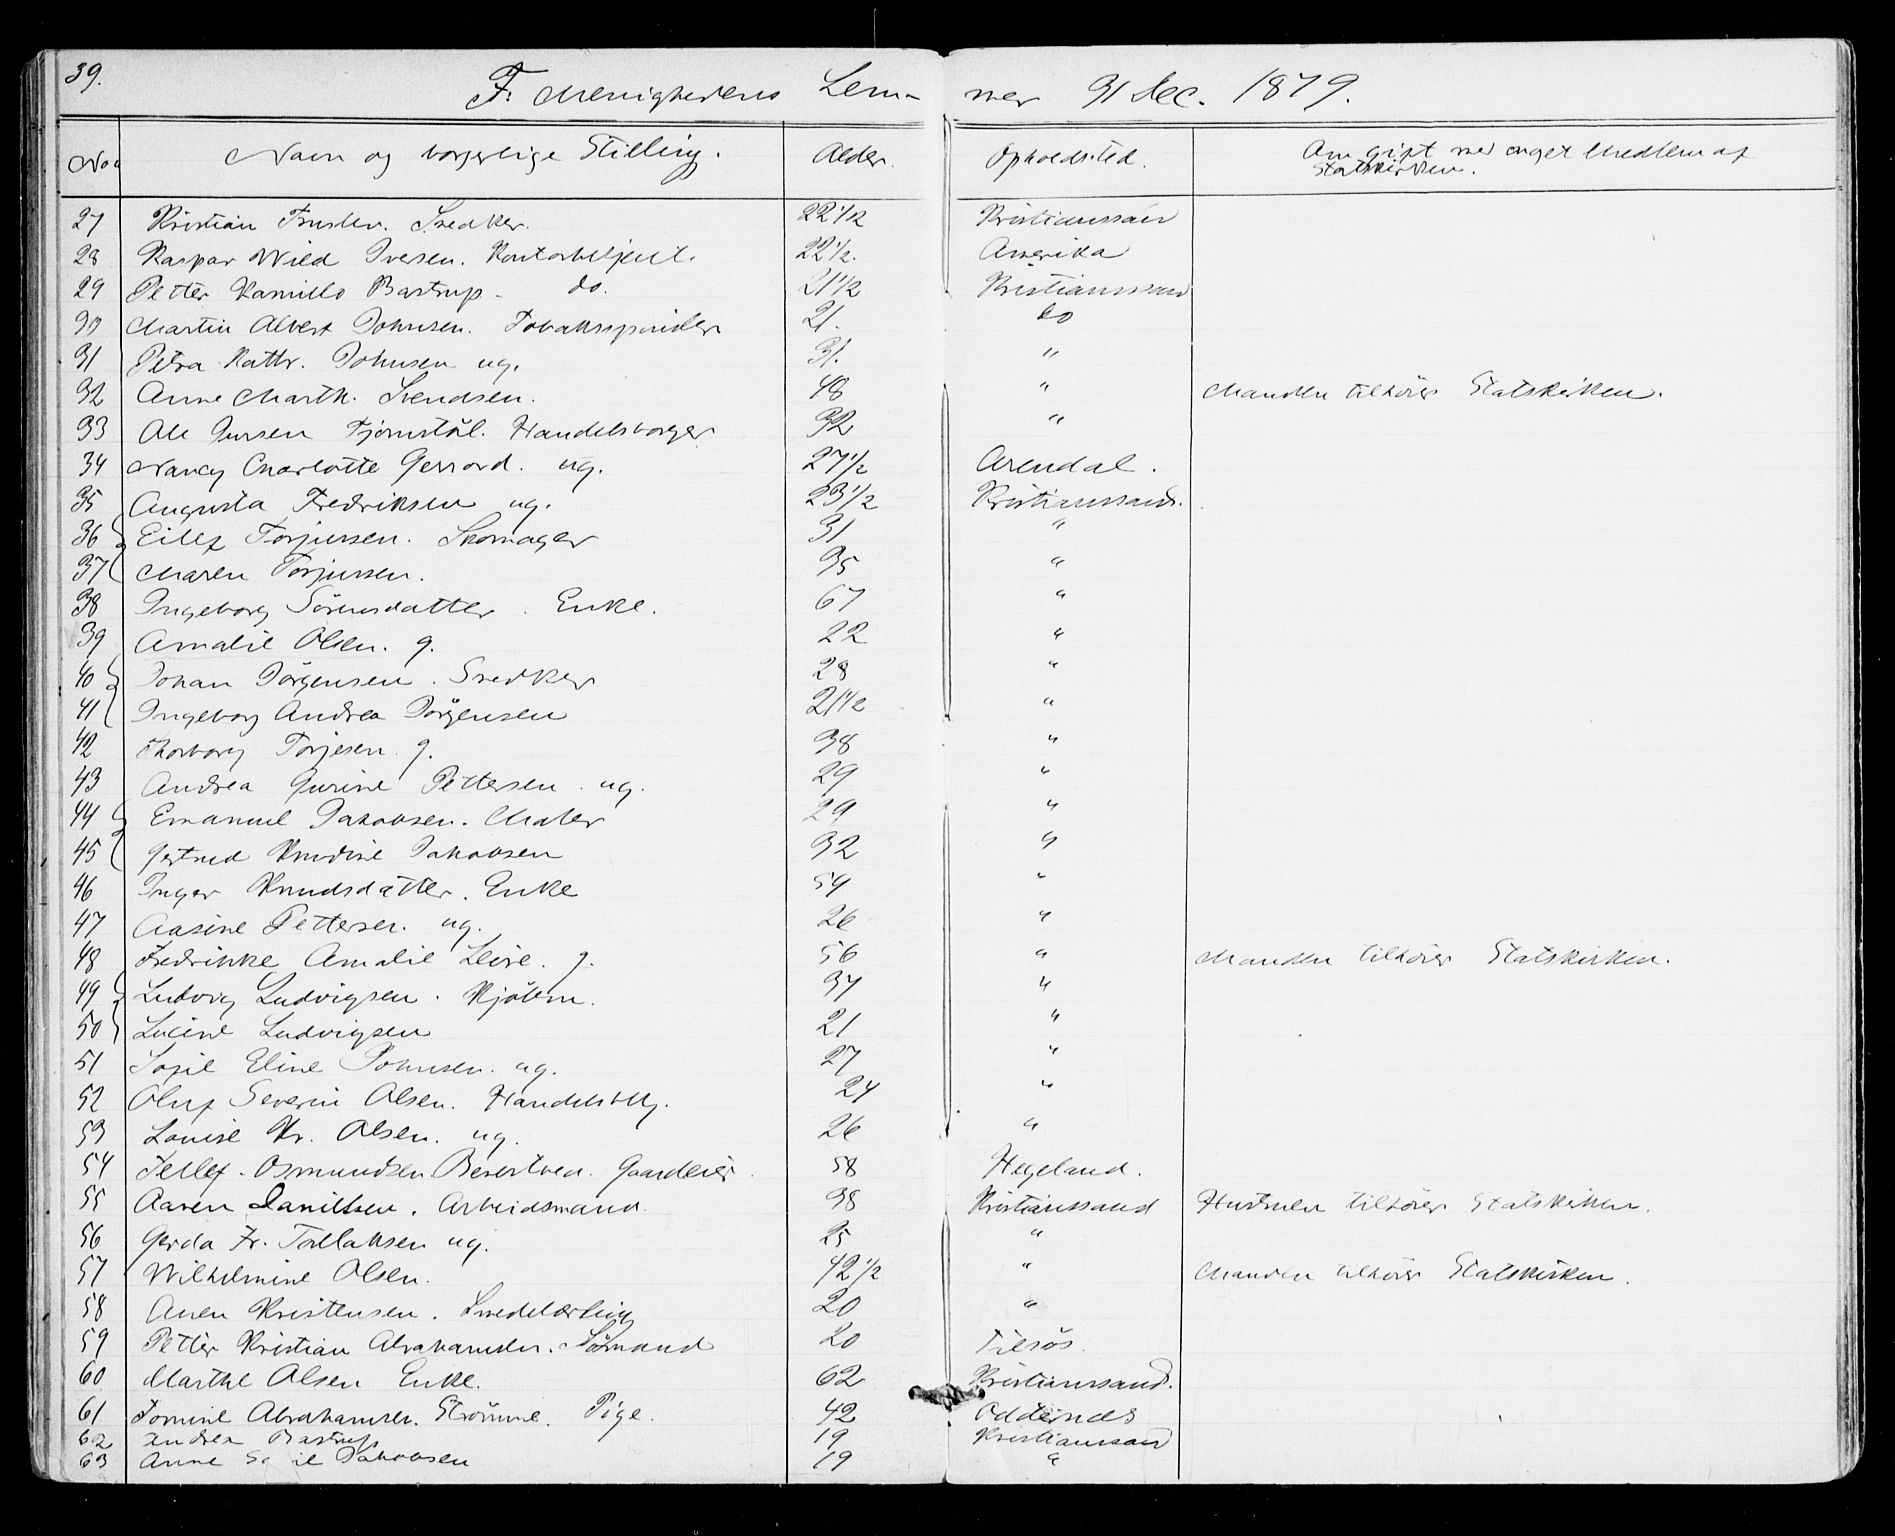 39.
F. Menighedens Lem- mer 31 Dec. 1879.
No. Navn og borgerlige Stilling. Alder. Opholdsted. Om gift med noget Medlem af
Statskirken.
27 Kristian Snedker. 22 1/2 Kristianssand
28 Kaspar Wild Iversen. Kontorbetjent. 22 1/2. Amerika
29 Petter Kamillo Bastrup. do. 21 1/2 Kristianssand
30 Martin Albert Johnsen. Tobaksspinder 21. do
31 Petra Kathr. Johnsen ug. 31. "
32 Anne Marth. Svendsen. 48 " Manden tilhører Statskirken.
33 Ole Gursen Fjørnstøl. Handelsborger 32 "
34 Nancy Charlotte Gerrard. ug. 27 1/2 Arendal.
35 Augusta Fredriksen ug. 23 1/2 Kristianssand.
36 Eilef Torjussen. Skomager 31 "
37 Maren Torjussen. 35 "
38 Ingeborg Sörensdatter. Enke. 67 "
39 Amalie Olsen. g. 22 "
40 Johan Jörgensen. Snedker 28 "
41 Ingeborg Andrea Jörgensen 21 1/2 "
42 Thorborg Torjesen. g. 38 "
43 Andrea Gurine Pettersen. ug. 29 "
44 Emanuel Jakobsen. Maler 29 "
45 Gertrud Knudine Jakobsen 32 "
46 Inger Knudsdatter. Enke 54 "
47 Aasine Pettersen. ug. 26 "
48 Fredrikke Amalie Leire. g. 56 " Manden tilhörer Statskirken.
49 Ludvig Ludvigsen. Kjöbm. 37 "
50 Lucine Ludvigsen 21 "
51 Sofie Eline Johnsen. ug. 27 "
52 Oluf Severin Olsen. Handelsbetj. 24 "
53 Louise Kr. Olsen. ug. 26 "
54 Tellef Osmundsen Gaardeier. 58 Hegeland.
55 Aaren Danielsen. Arbeidsmand. 38 Kristianssand Hustruen tilhörer Statskirken.
56 Gerda Fr. Tallaksen ug. 25 "
57 Wilhelmine Olsen. 42 1/2 " Manden tilhörer Statskirken.
58 Anen Kristensen. Smedelærling 20 "
59 Petter Kristian Abrahamsen. Sömand 20 Tilsös.
60 Marthe Olsen Enke. 62 Kristianssand.
61 Tomine Abrahamsen. Strömme. Pige. 42 Oddernes
62 Andrea Bastrup 19 Kristianssand
63 Anne Jakobsen 19 "